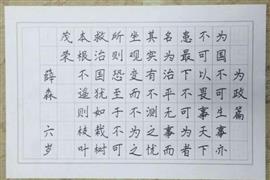 为政篇
为国不可生事亦
不可以畏事天下
患最不可为者
名为治平无事而
其实有不测之忧
坐观变而不为之
所则恐至于不可
救治国犹如栽树
本根不遥则枝叶
茂荣
薛森 六岁